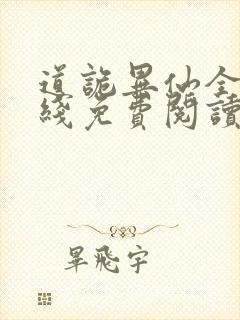 道詭異仙全
綫免費閱讀
畢飛宇